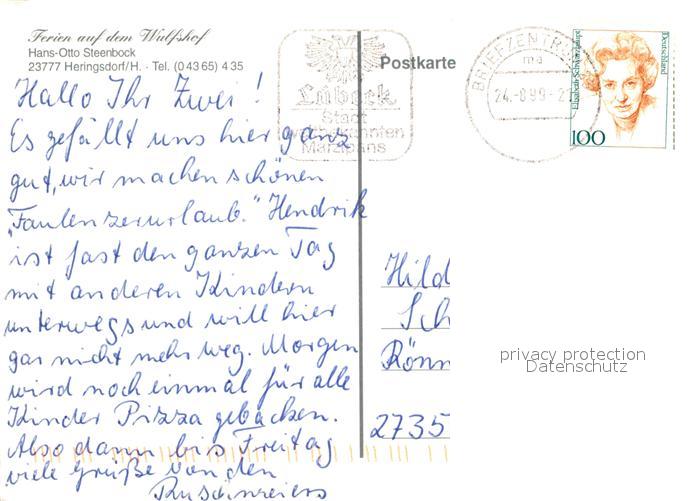 Ferien auf dem Wulfshof
Hans-Otto Steenbock
23777 Heringsdorf/H. · Tel. (0 43 65) 4 35
Hallo Ihr Zwei!
Es gefällt uns hier ganz
gut, wir machen schönen
„Faulenzerurlaub." Hendrik
ist fast den ganzen Tag
mit anderen Kindern
unterwegs und will hier
gar nicht mehr weg. Morgen
wird noch einmal für alle
Kinder Pizza gebacken.
Also dann bis Freitag
viele Grüße von den
Lübeck
Stadt
Marzipans
Postkarte
BRIEFZENTRUM
24.-8.99-2
Deutschland
100
Hild
Sch
Rönn
2735
privacy protection
Datenschutz